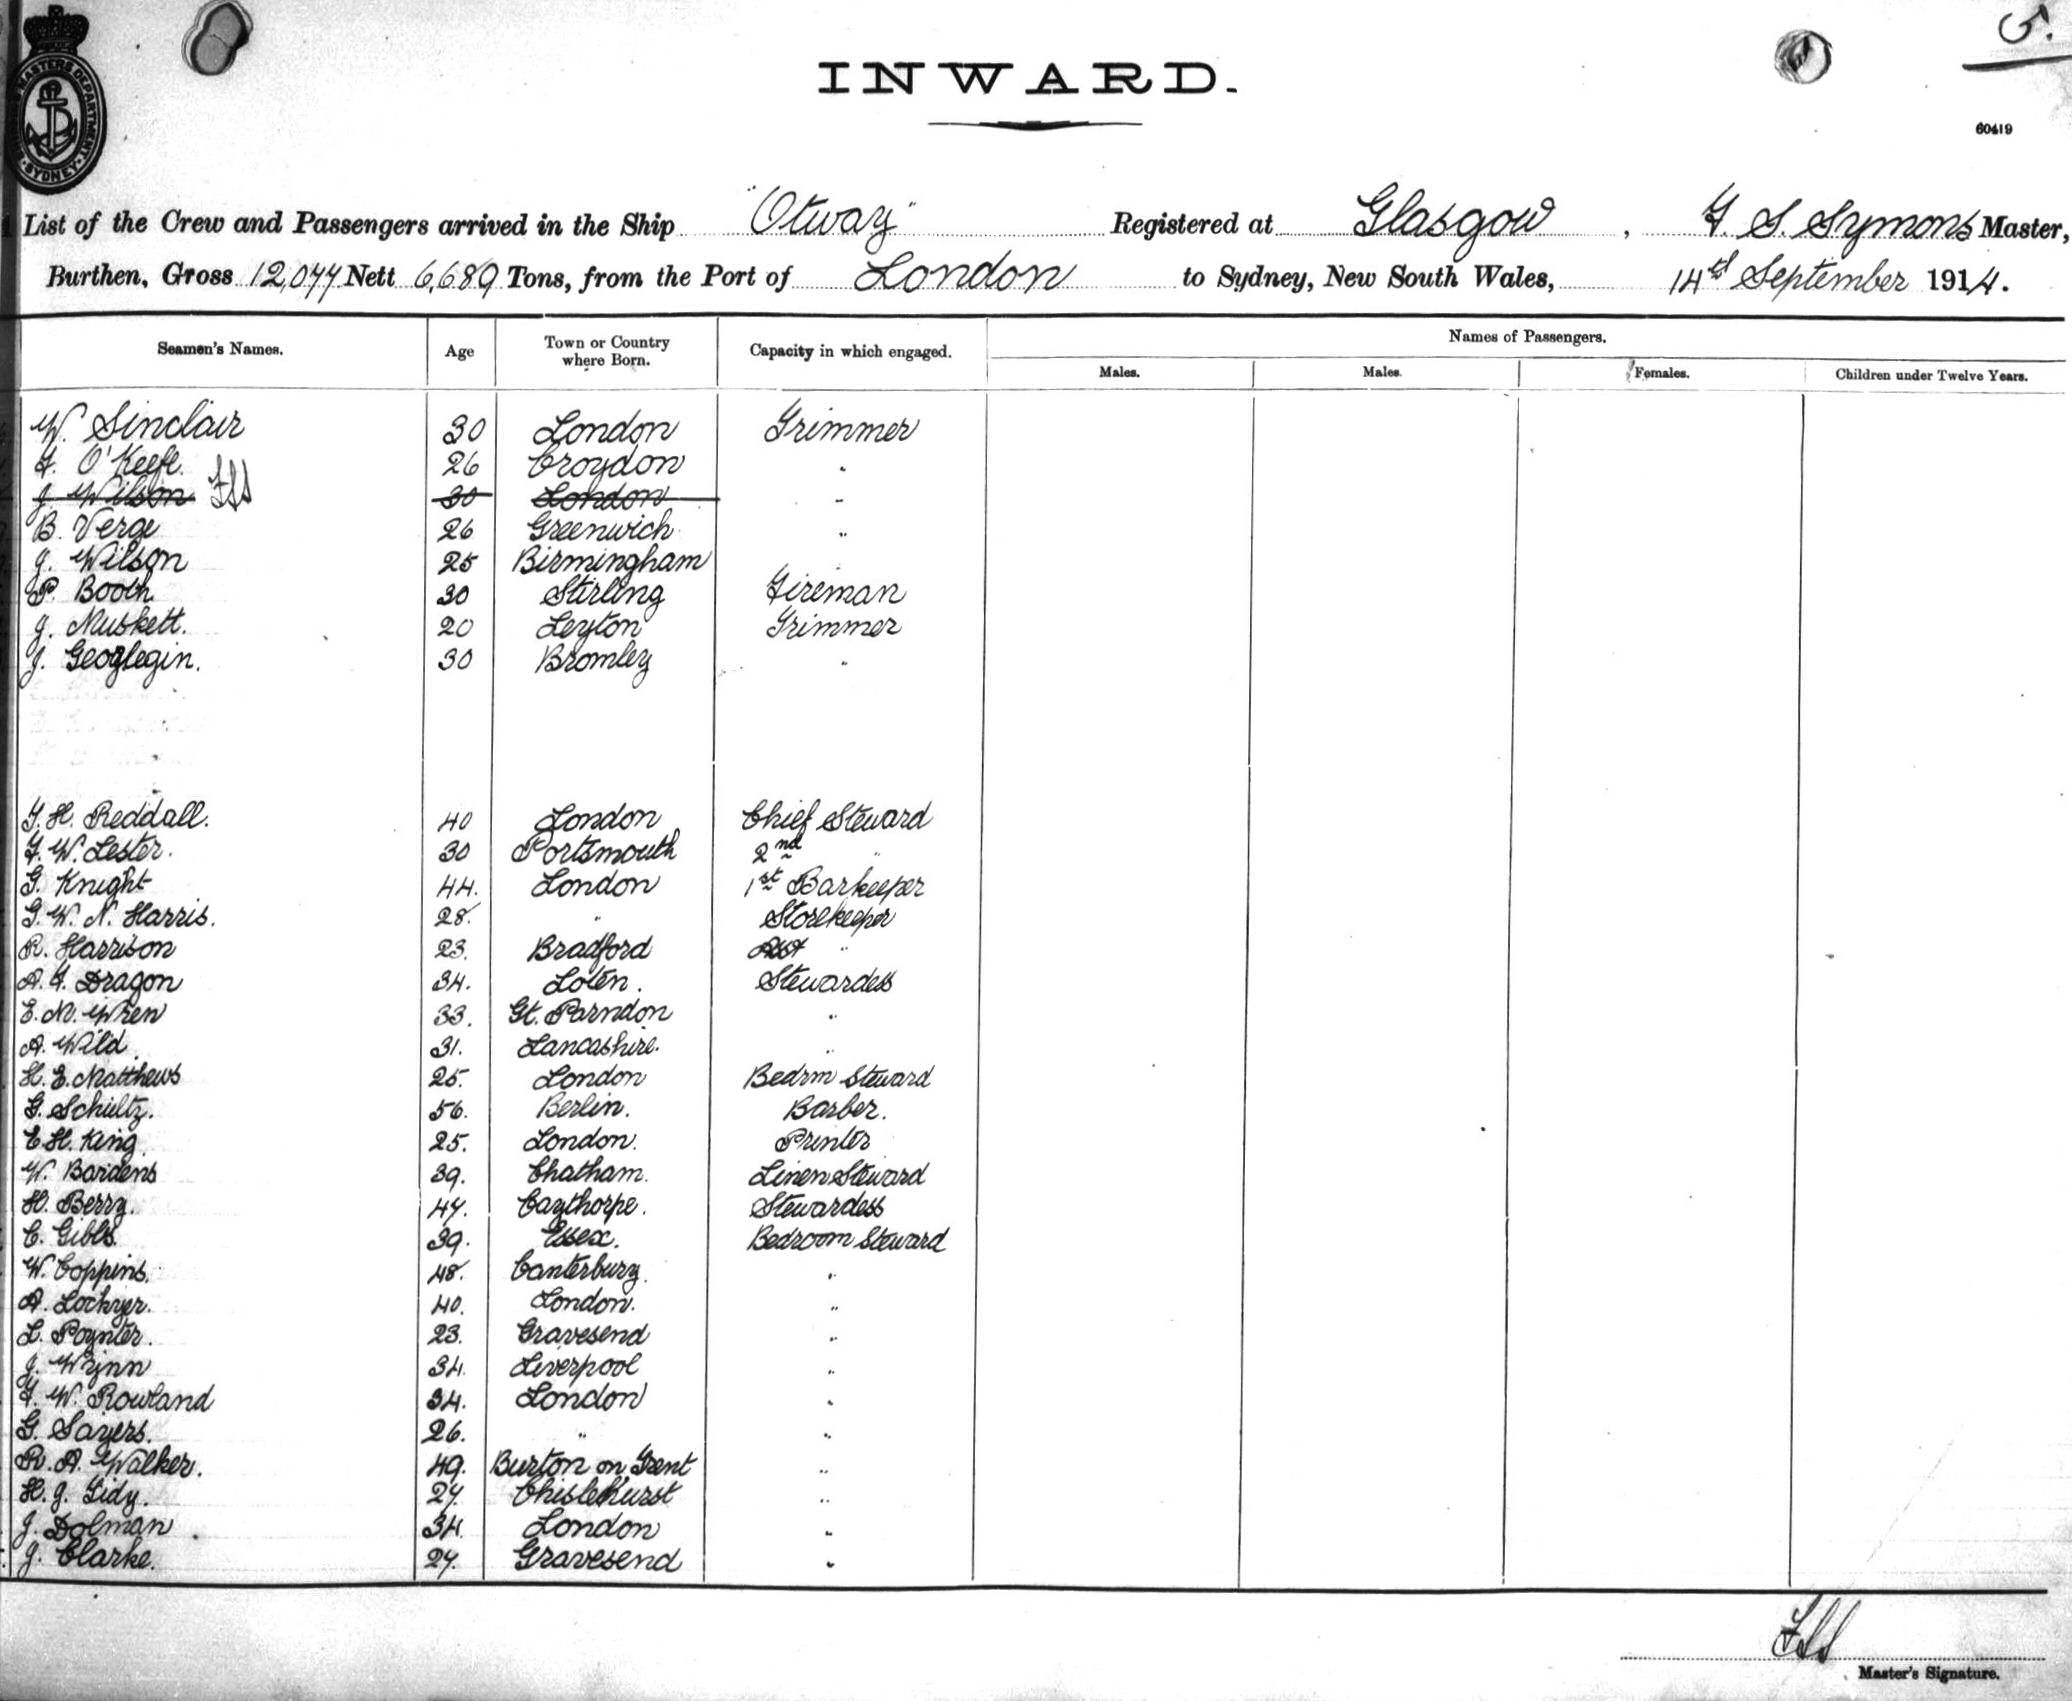 5.
INWARD.
60419
MASTERS DEPARTMENT SYDNEY
List of the Crew and Passengers arrived in the Ship "Otway" Registered at Glasgow, F. S. Symons Master,
Burthen, Gross 12,077 Nett 6,689 Tons, from the Port of London to Sydney, New South Wales, 14th September 1914.
Seamen's Names. Age Town or Country where Born. Capacity in which engaged. Names of Passengers.
Males. Males. Females. Children under Twelve Years.
W. Sinclair 30 London Trimmer
F. O'Keefe. 26 Croydon "
J. Wilson 30 London "
B. Verge 26 Greenwich "
J. Wilson 25 Birmingham "
P. Booth 30 Stirling Fireman
J. Muskett. 20 Leyton Trimmer
J. Geoghegin. 30 Bromley "
T. H. Reddall. 40 London Chief Steward
F. W. Lester. 30 Portsmouth 2nd "
G. Knight 44. London 1st Barkeeper
G. W. N. Harris. 28. " Storekeeper
R. Harrison 23. Bradford Asst "
A. F. Dragon 34. Loten. Stewardess
E. M. Wren 33. Gt. Parndon "
A. Wild 31. Lancashire. "
H. E. Matthews 25. London Bedrm Steward
G. Schultz. 56. Berlin. Barber.
E. H. King. 25. London. Printer
W. Bardens 39. Chatham. Linen Steward
H. Berry. 47. Caythorpe. Stewardess
C. Gibbs. 39. Essex. Bedroom Steward
W. Coppins. 48. Canterbury. "
A. Lockyer. 40. London. "
L. Poynter. 23. Gravesend "
J. Wynn 34. Liverpool "
F. W. Rowland 34. London "
G. Sayers. 26. " "
R. A. Walker. 49. Burton on Trent "
H. J. Tidy. 27. Chislehurst "
J. Dolman 34. London "
J. Clarke. 27. Gravesend "
FSS
Master's Signature.